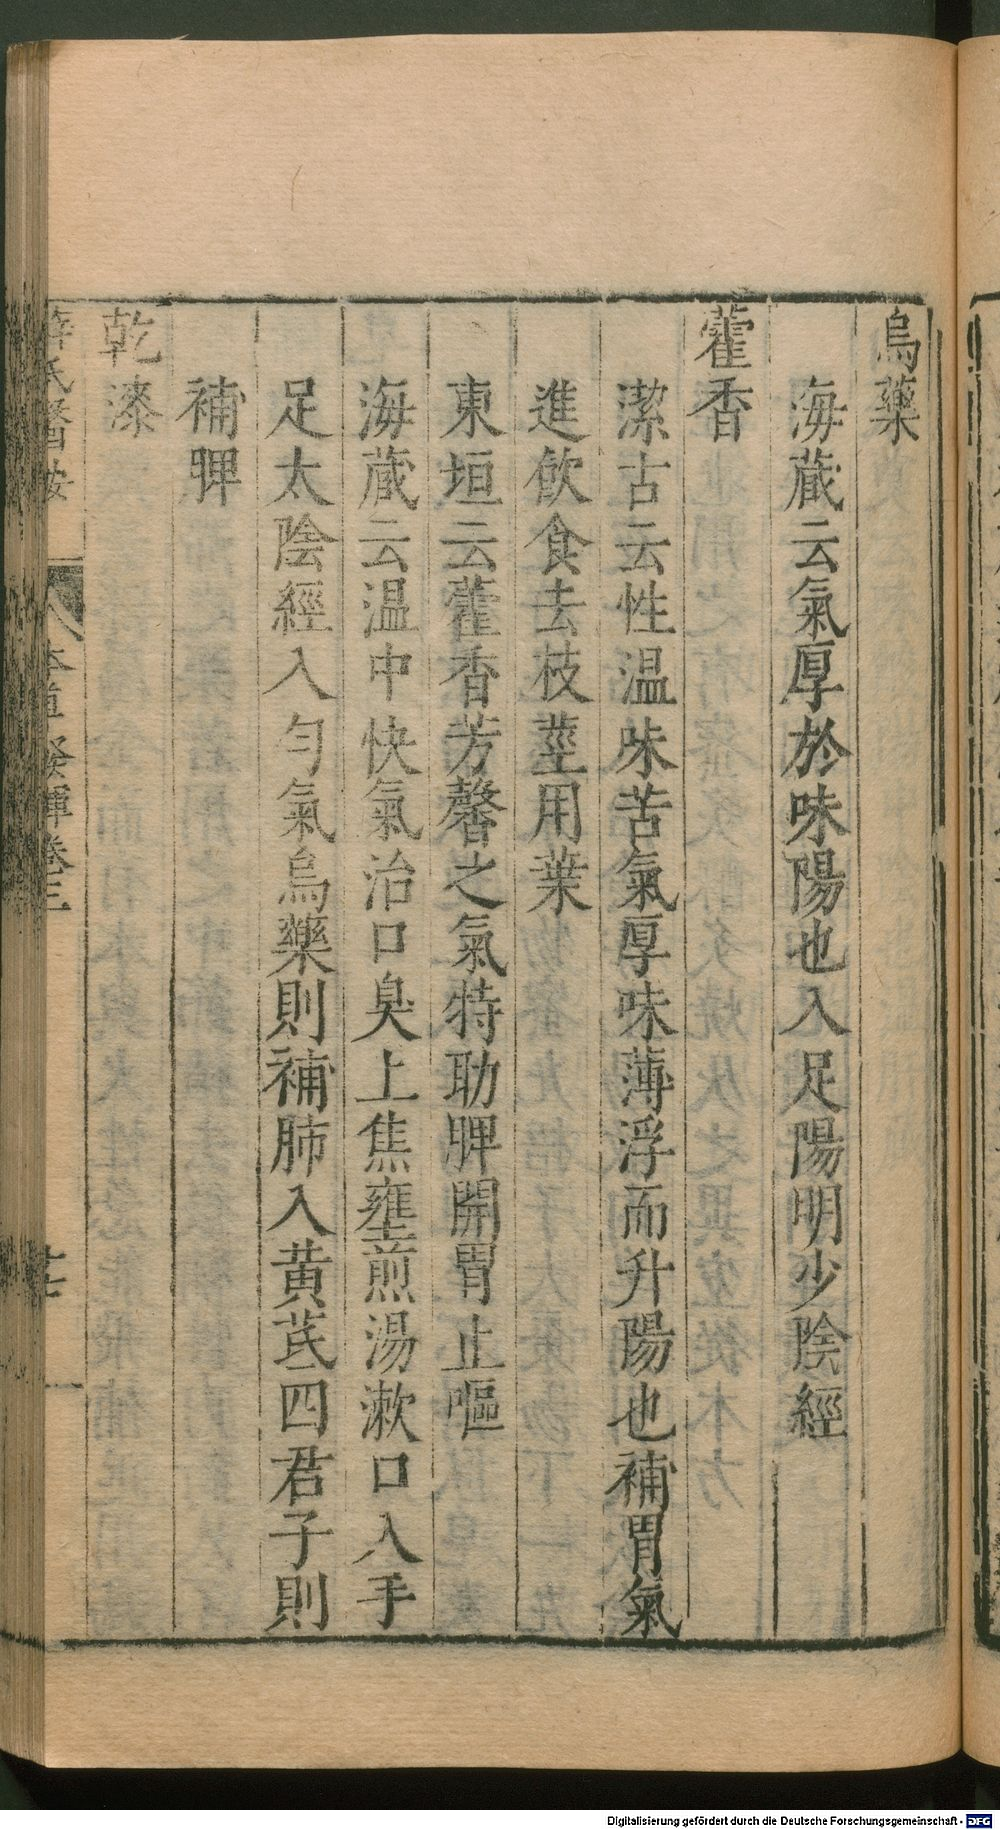 烏藥
海藏云氣厚於味陽也入足陽明少陰經
藿香
潔古云性温味苦氣厚味薄浮而升陽也補胃氣
進飲食去枝莖用葉
東垣云藿香芳馨之氣特助脾開胃止嘔
海藏云温中快氣治口臭上焦壅煎湯漱口入手
足太陰經入勻氣烏藥則補肺入黄芪四君子則
補脾
乾漆
薛氏醫按
本草發揮卷三
Digitalisierung gefördert durch die Deutsche Forschungsgemeinschaft - DFG